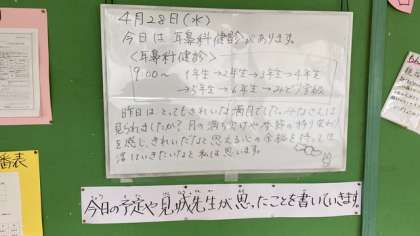 4月28日(水)
今日は耳鼻科健診があります。
〈耳鼻科健診〉
9:00〜 1年生→2年生→3年生→4年生
→5年生→6年生→みどり学級
昨日は、とってもきれいな満月でした。みなさんは
見られましたか？月の満ち欠けや季節の移り変わり
を感じ、きれいだなと思える心の余裕を持って生
活していきたいなと私は思います。
今日の予定や見城先生が思ったことを書いていきます。
番表